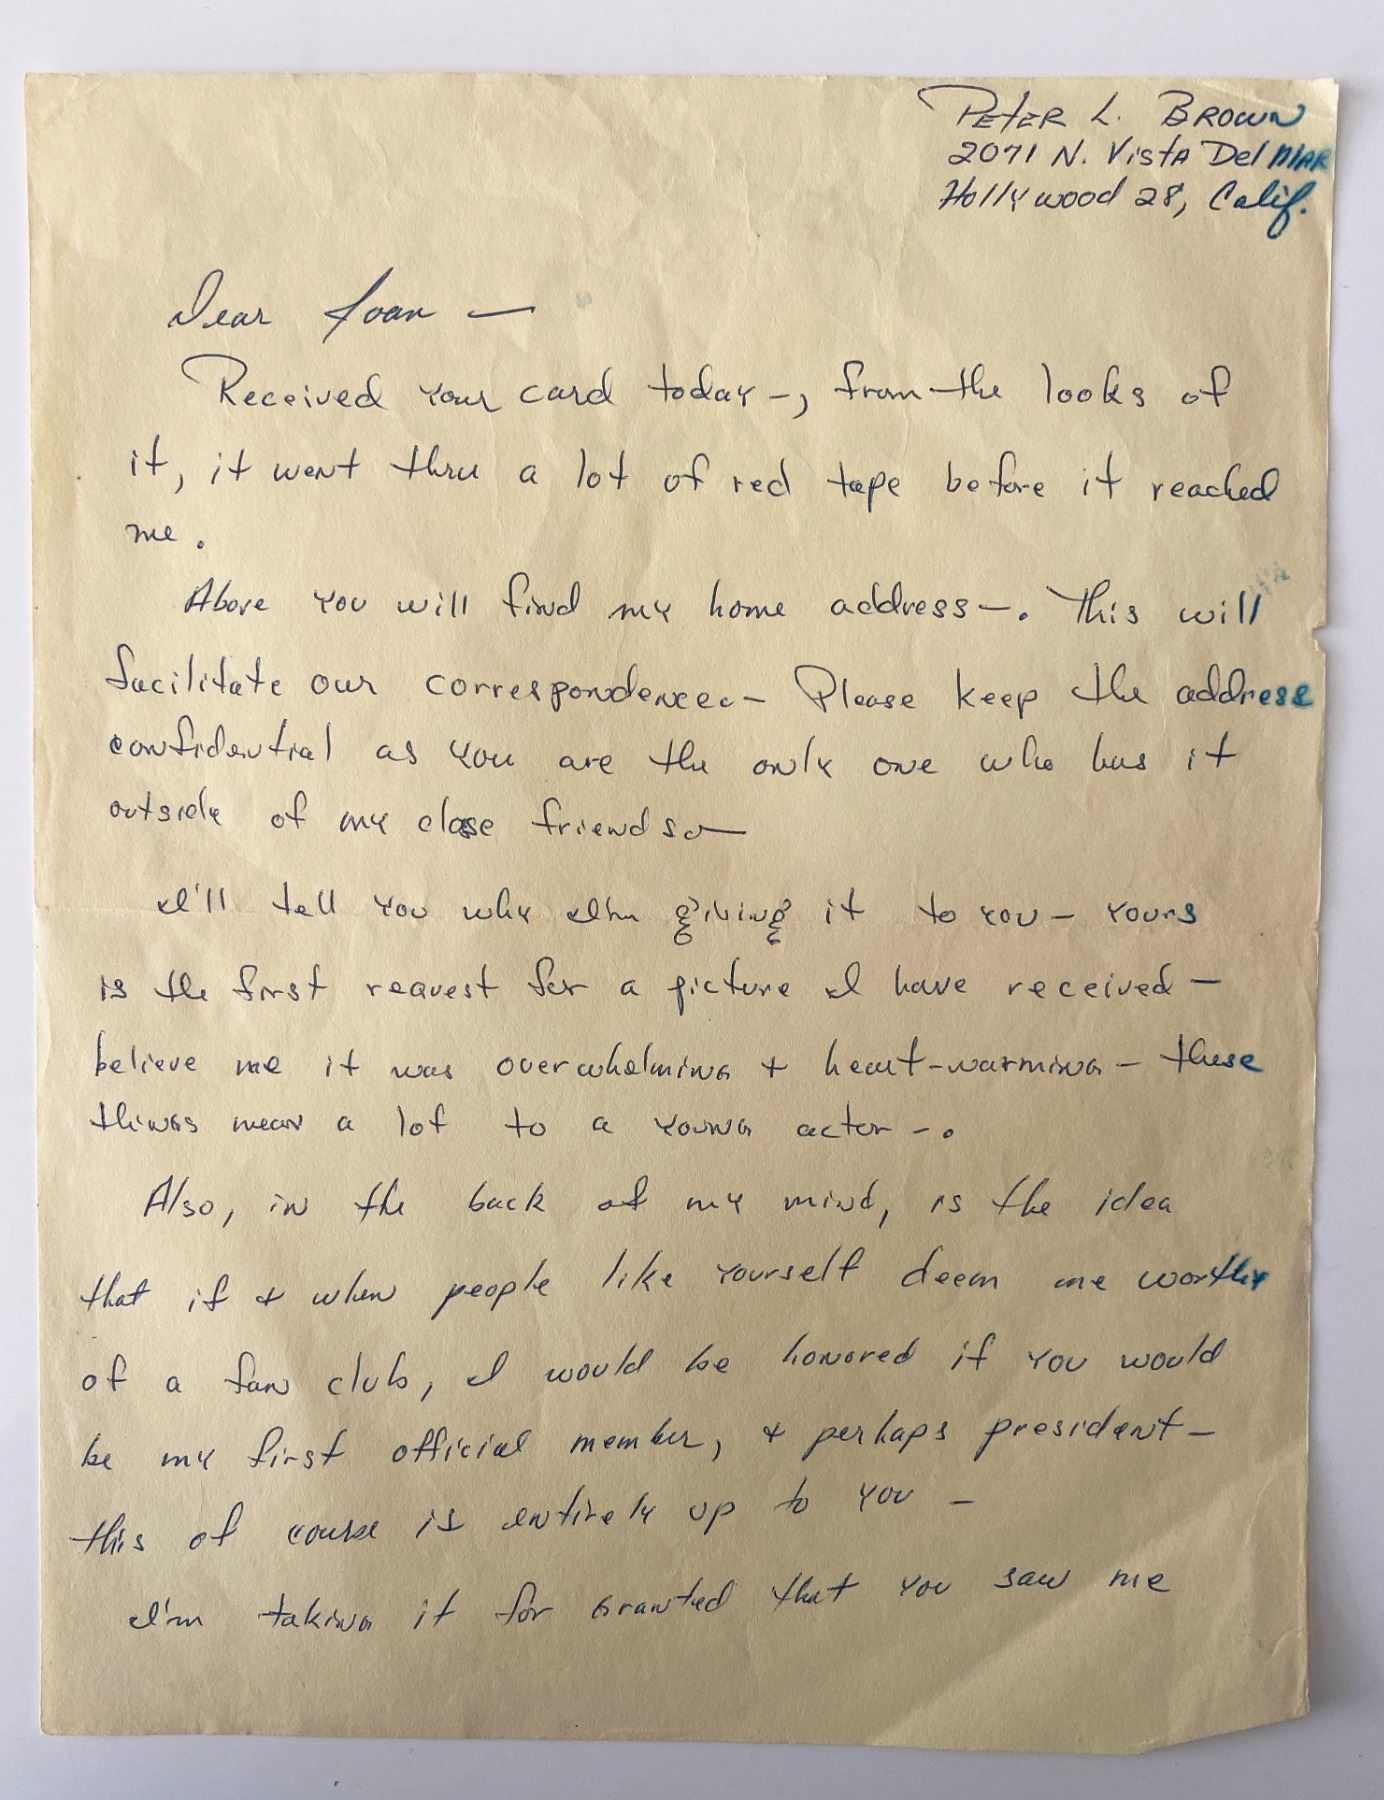 Peter L. Brown
2071 N. Vista Del Mar
Hollywood 28, Calif.
Dear Joan —
Received your card today -, from the looks of
it, it went thru a lot of red tape before it reached
me.
Above you will find my home address —. This will
facilitate our correspondence. — Please keep the address
confidential as you are the only one who has it
outside of my close friends. —
I'll tell you why I'm giving it to you — yours
is the first request for a picture I have received —
believe me it was overwhelming + heart-warming — these
things mean a lot to a young actor -.
Also, in the back of my mind, is the idea
that if + when people like yourself deem me worthy
of a fan club, I would be honored if you would
be my first official member, + perhaps president —
this of course is entirely up to you —
I'm taking it for granted that you saw me